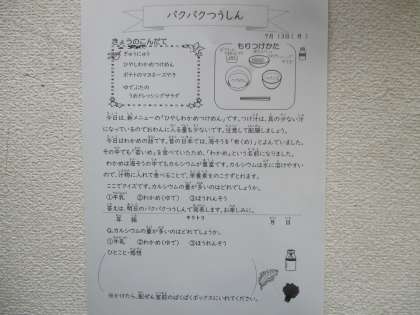 パクパクつうしん
7月13日(月)
きょうのこんだて
もりつけかた
ぎゅうにゅう
ひやしわかめつけめん
ポテトのマヨネーズやき
ゆでぶたの
うめドレッシングサラダ
今日は、新メニューの「ひやしわかめつけめん」です。つけ汁は、具の少ない汁
になっているのでおわんに入る量も少ないです。注意して配膳しましょう。
今日はわかめの話です。昔の日本では、海そうを「め(め)」とよんでいました。
その中でも「若いめ」を食べていたため、「わかめ」という名前になりました。
わかめは海そうの中でもカルシウムが豊富です。カルシウムは水に溶けやすい
ので、汁物に入れて食べることで、栄養素をのこさずとれます。
ここでクイズです。カルシウムの量が多いのはどれでしょうか。
①牛乳 ②わかめ(ゆで) ③ほうれんそう
答えは、明日のパクパクつうしんで発表します。お楽しみに。
年 組 キリトリ 月 日
Q.カルシウムの量が多いのはどれでしょうか。
①牛乳 ②わかめ(ゆで) ③ほうれんそう
ひとこと・感想
※かけたら、配ぜん室前のぱくぱくボックスにいれてください。